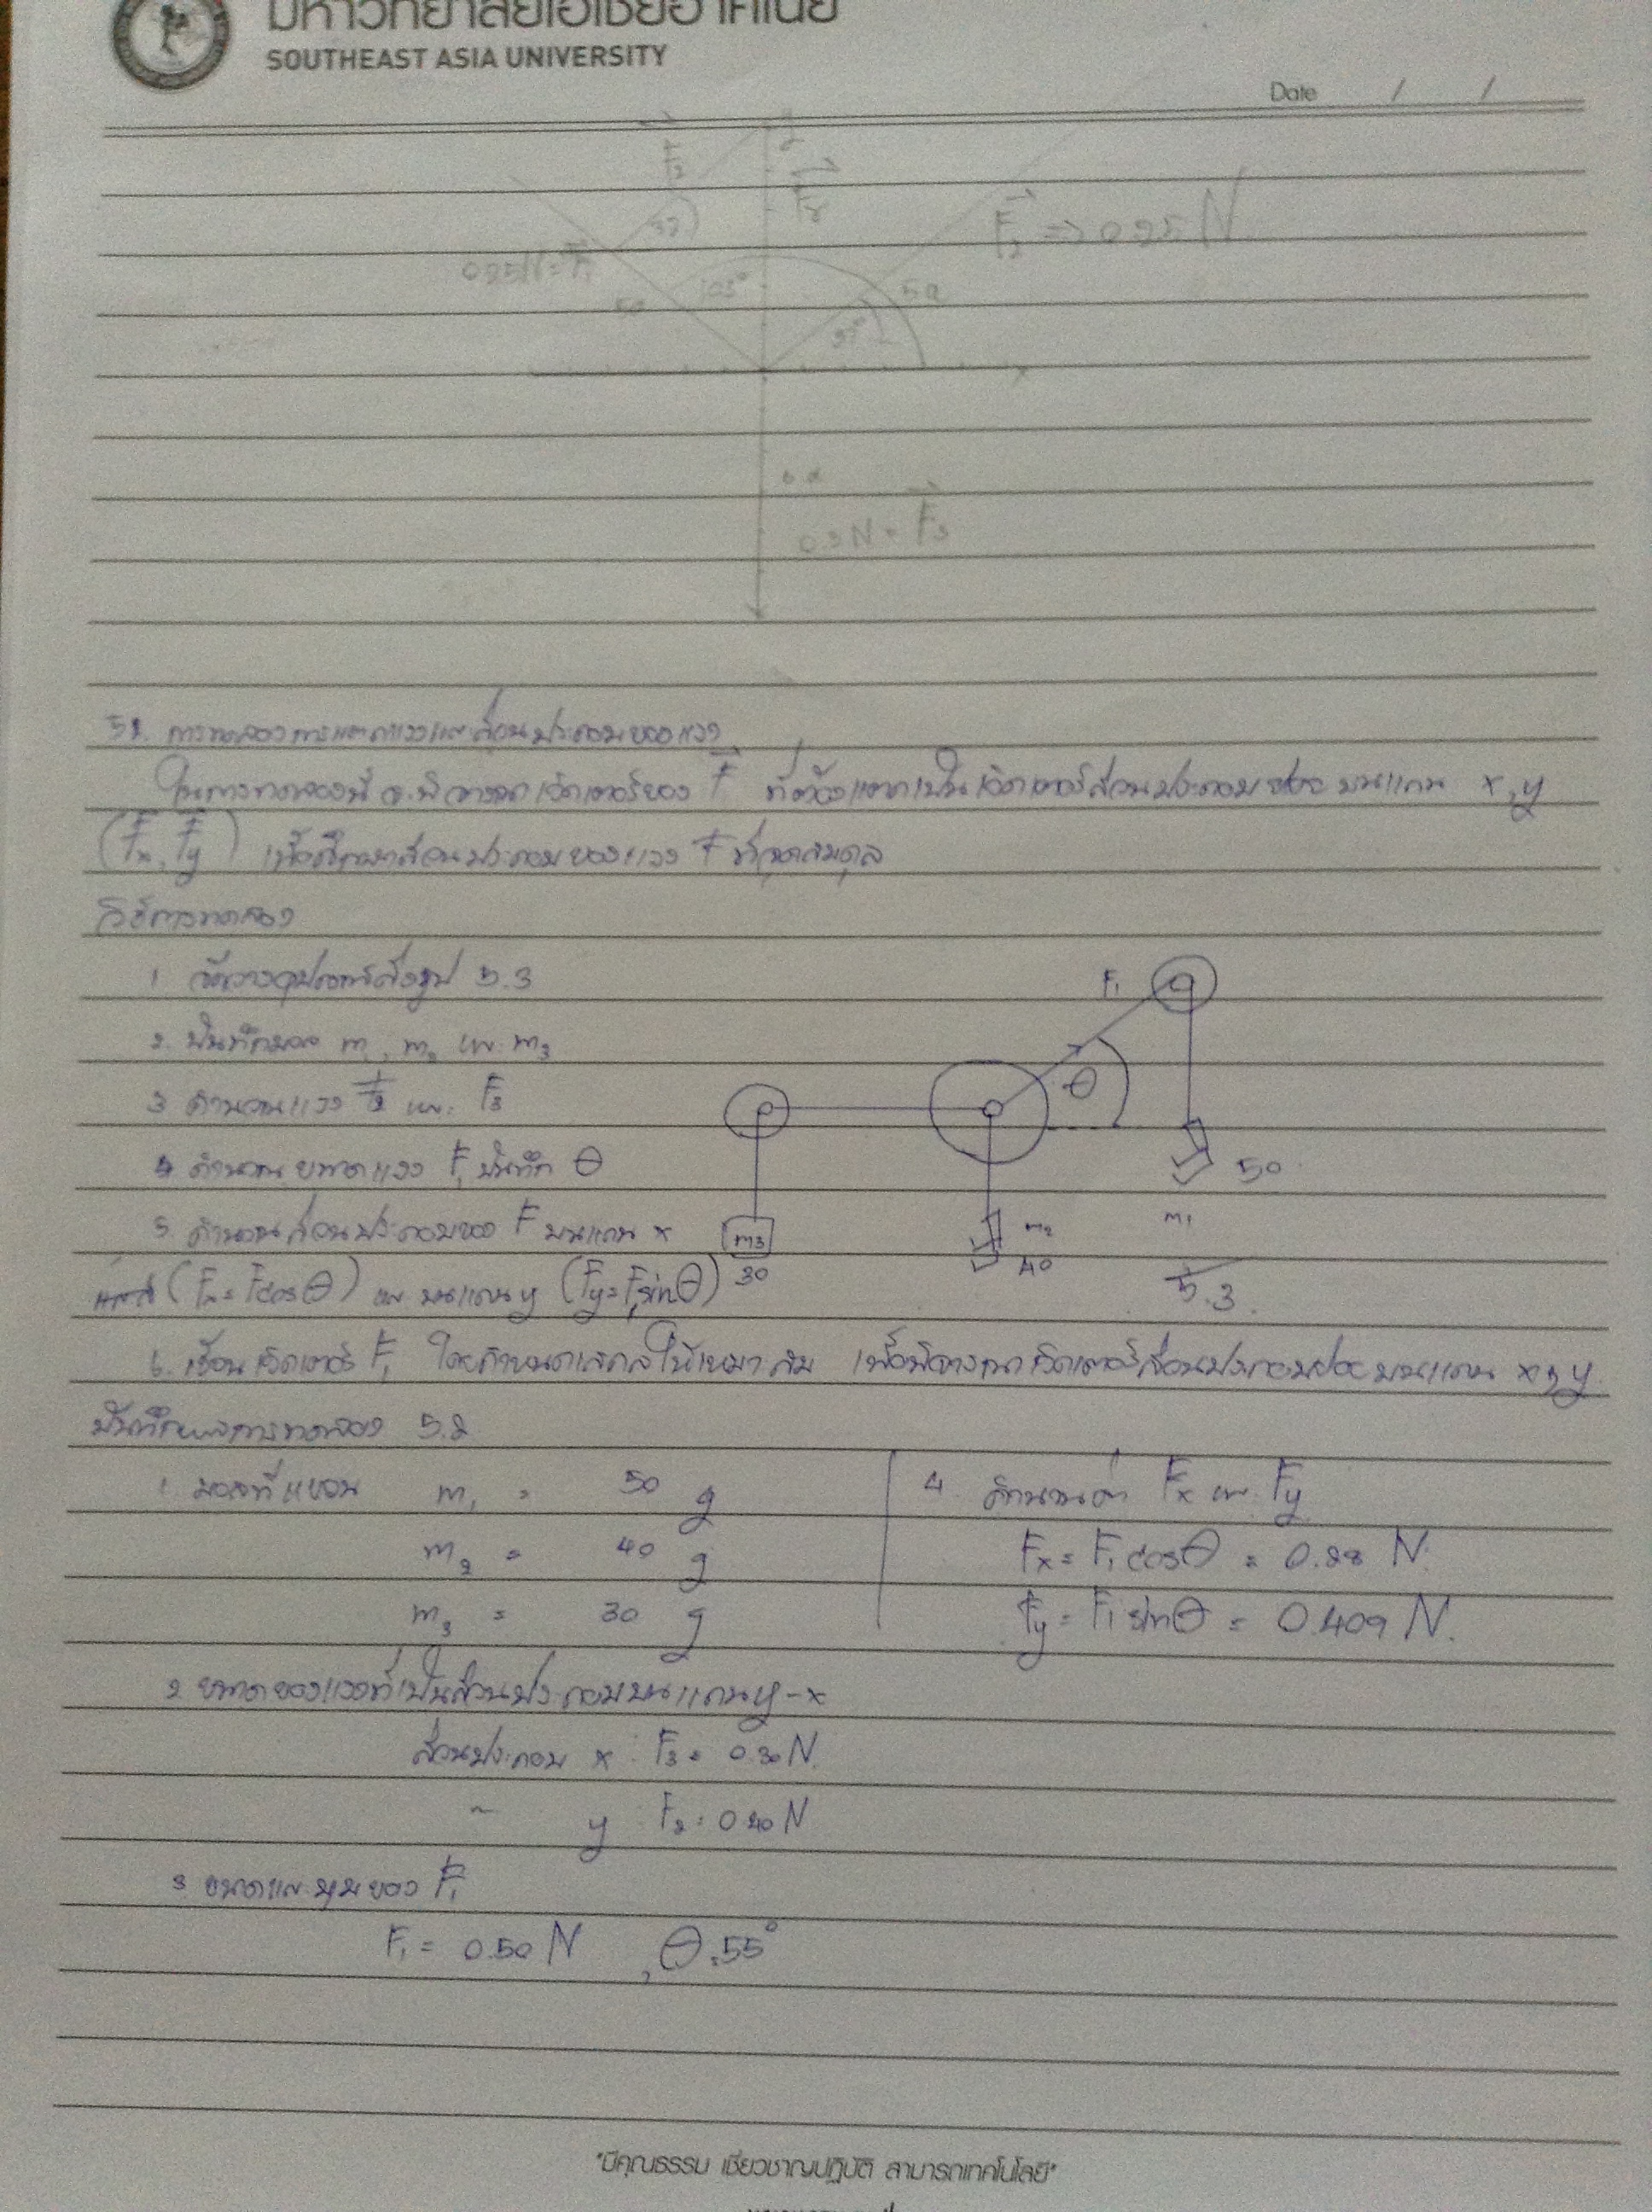 มหาวิทยาลัยเอเชียอาคเนย์
SOUTHEAST ASIA UNIVERSITY
Date / /
F2 => 0.25 N
0.25 N = F1
0.3 N = F3
5.2. การทดลองการแตกแรงและส่วนประกอบของแรง
ในการทดลองนี้ จะพิจารณาเวกเตอร์ของ F ที่ต้องแตกเป็นเวกเตอร์ส่วนประกอบย่อย บนแกน x, y
(Fx, Fy) เพื่อศึกษาส่วนประกอบของแรง F ที่จุดสมดุล
วิธีการทดลอง
1 จัดวางอุปกรณ์ดังรูป 5.3
2. บันทึกมวล m1, m2 และ m3
3 คำนวณแรง F2 และ F3
4 คำนวณขนาดแรง F1 บันทึก θ
5. คำนวณส่วนประกอบของ F บนแกน x
(Fx = F cos θ) และ บนแกน y (Fy = F1 sin θ)
F1
θ
50
m1
m2
40
m3
30
5.3.
6. เขียนเวกเตอร์ F1 โดยกำหนดสเกลให้เหมาะสม เพื่อพิจารณาเวกเตอร์ส่วนประกอบย่อยบนแกน x, y
บันทึกผลการทดลอง 5.2
1. มวลที่แขวน m1 = 50 g
m2 = 40 g
m3 = 30 g
4. คำนวนค่า Fx และ Fy
Fx = F1 cos θ = 0.28 N.
Fy = F1 sin θ = 0.409 N.
2 ขนาดของแรงที่เป็นส่วนประกอบบนแกน y-x
ส่วนประกอบ x : F3 = 0.30 N.
~ y : F2 = 0.40 N
3 ขนาดและมุมของ F1
F1 = 0.50 N , θ = 55°
"มีคุณธรรม เชี่ยวชาญปฏิบัติ สามารถเทคโนโลยี"